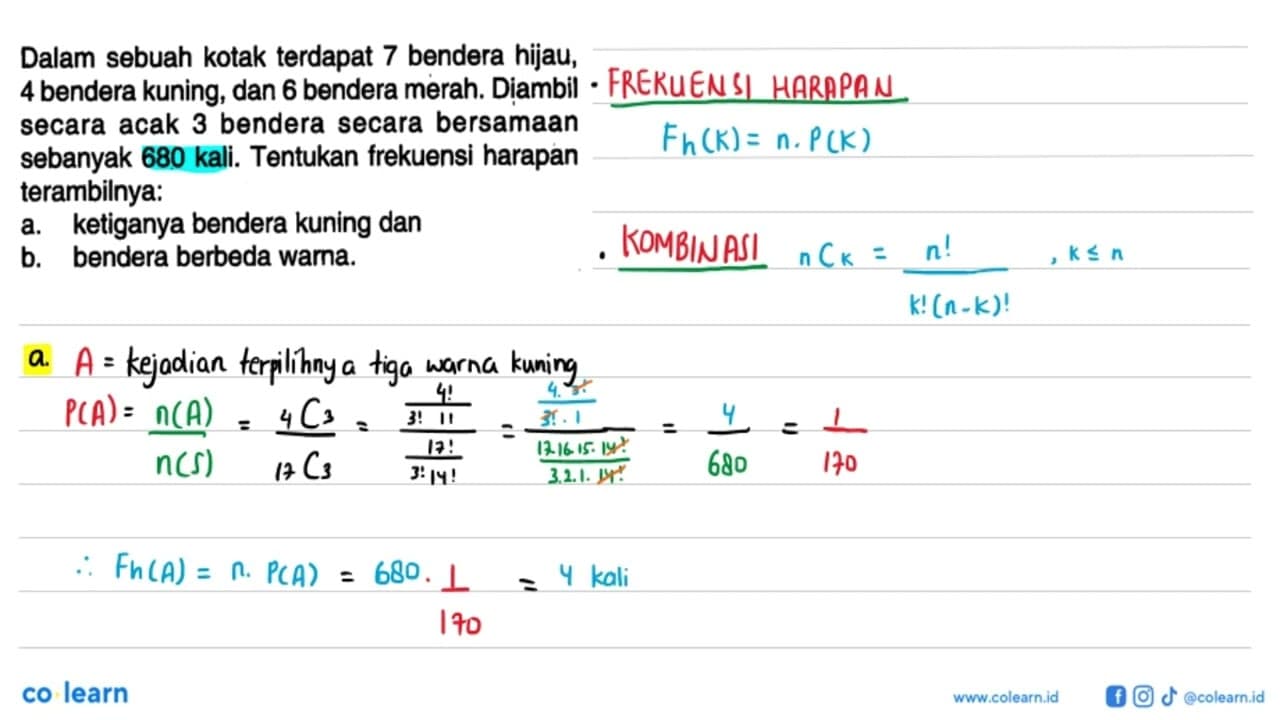 Dalam sebuah kotak terdapat 7 bendera hijau,
4 bendera kuning, dan 6 bendera merah. Diambil
secara acak 3 bendera secara bersamaan
sebanyak 680 kali. Tentukan frekuensi harapan
terambilnya:
a. ketiganya bendera kuning dan
b. bendera berbeda warna.
• FREKUENSI HARAPAN
Fh(K) = n. P(K)
• KOMBINASI nCk = n! / k!(n-k)! , k ≤ n
a. A = kejadian terpilihnya tiga warna kuning
P(A) = n(A) / n(S) = 4C3 / 17C3 = (4! / 3! 1!) / (17! / 3! 14!) = (4. 3! / 3! . 1) / (17.16.15.14! / 3.2.1.14!) = 4 / 680 = 1 / 170
∴ Fh(A) = n. P(A) = 680 . 1 / 170 = 4 kali
co learn
www.colearn.id
@colearn.id